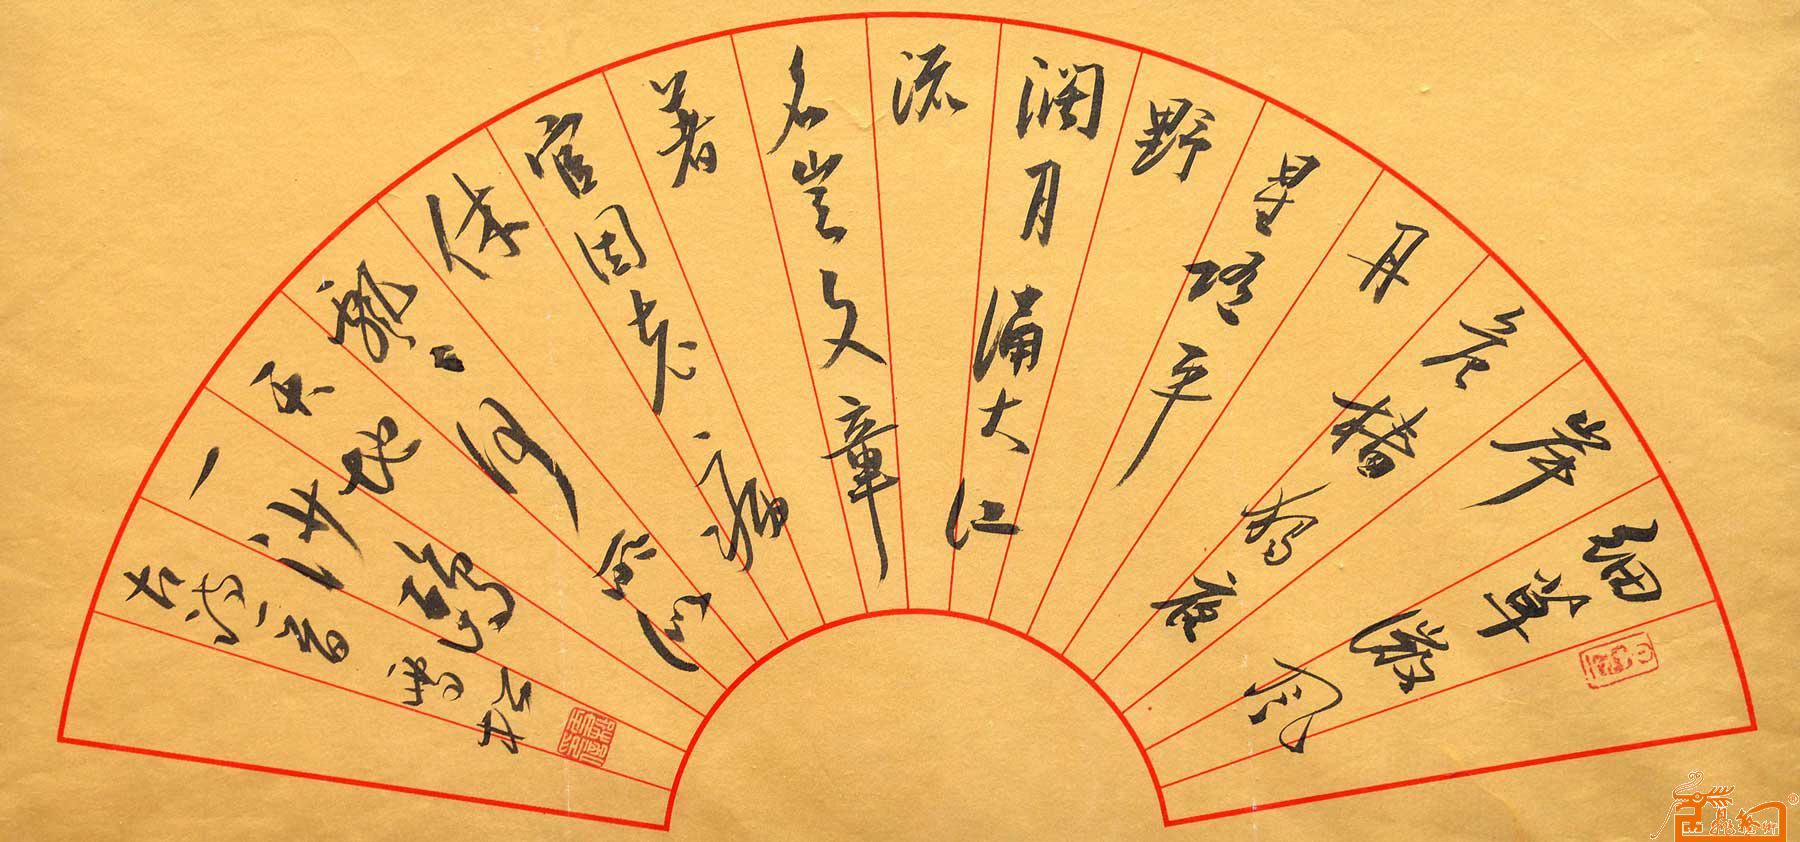 细草微风
岸
危樯独夜
舟
星垂平
野
阔月涌大江
流
名岂文章
著
官因老病
休
飘飘何所似
天地
一沙鸥